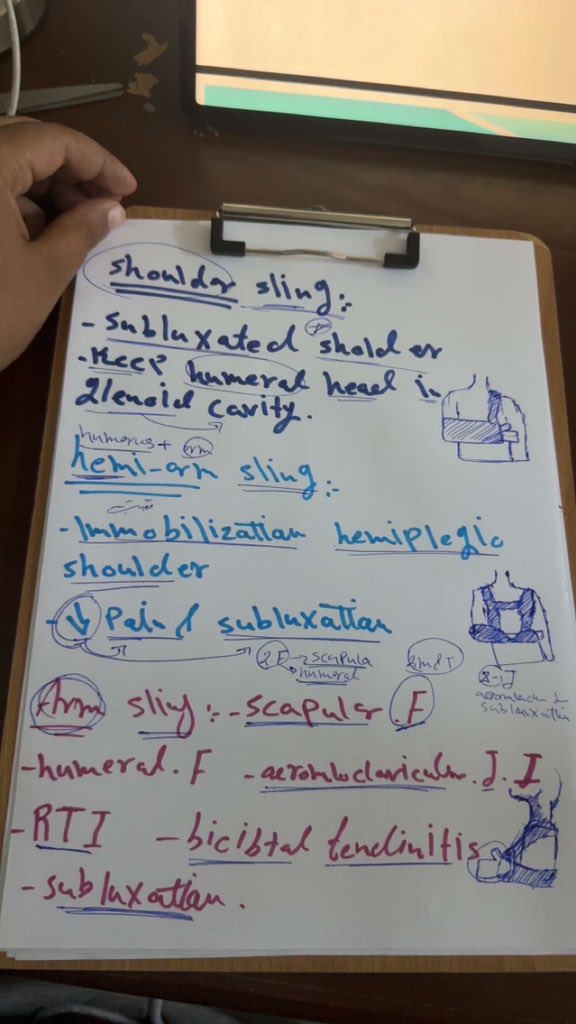 shoulder sling:-
- subluxated sholder
- Keep humeral head in
glenoid cavity.
humerus + arm
hemi-arm sling:-
تثبيت
- Immobilization hemiplegic
shoulder
- ↓ Pain & subluxation
2 F → scapula
humeral
Arm sling:- - scapular . F
- humeral . F - acromioclavicular . J . I
- RTI - bicibtal tendinitis
- subluxation .